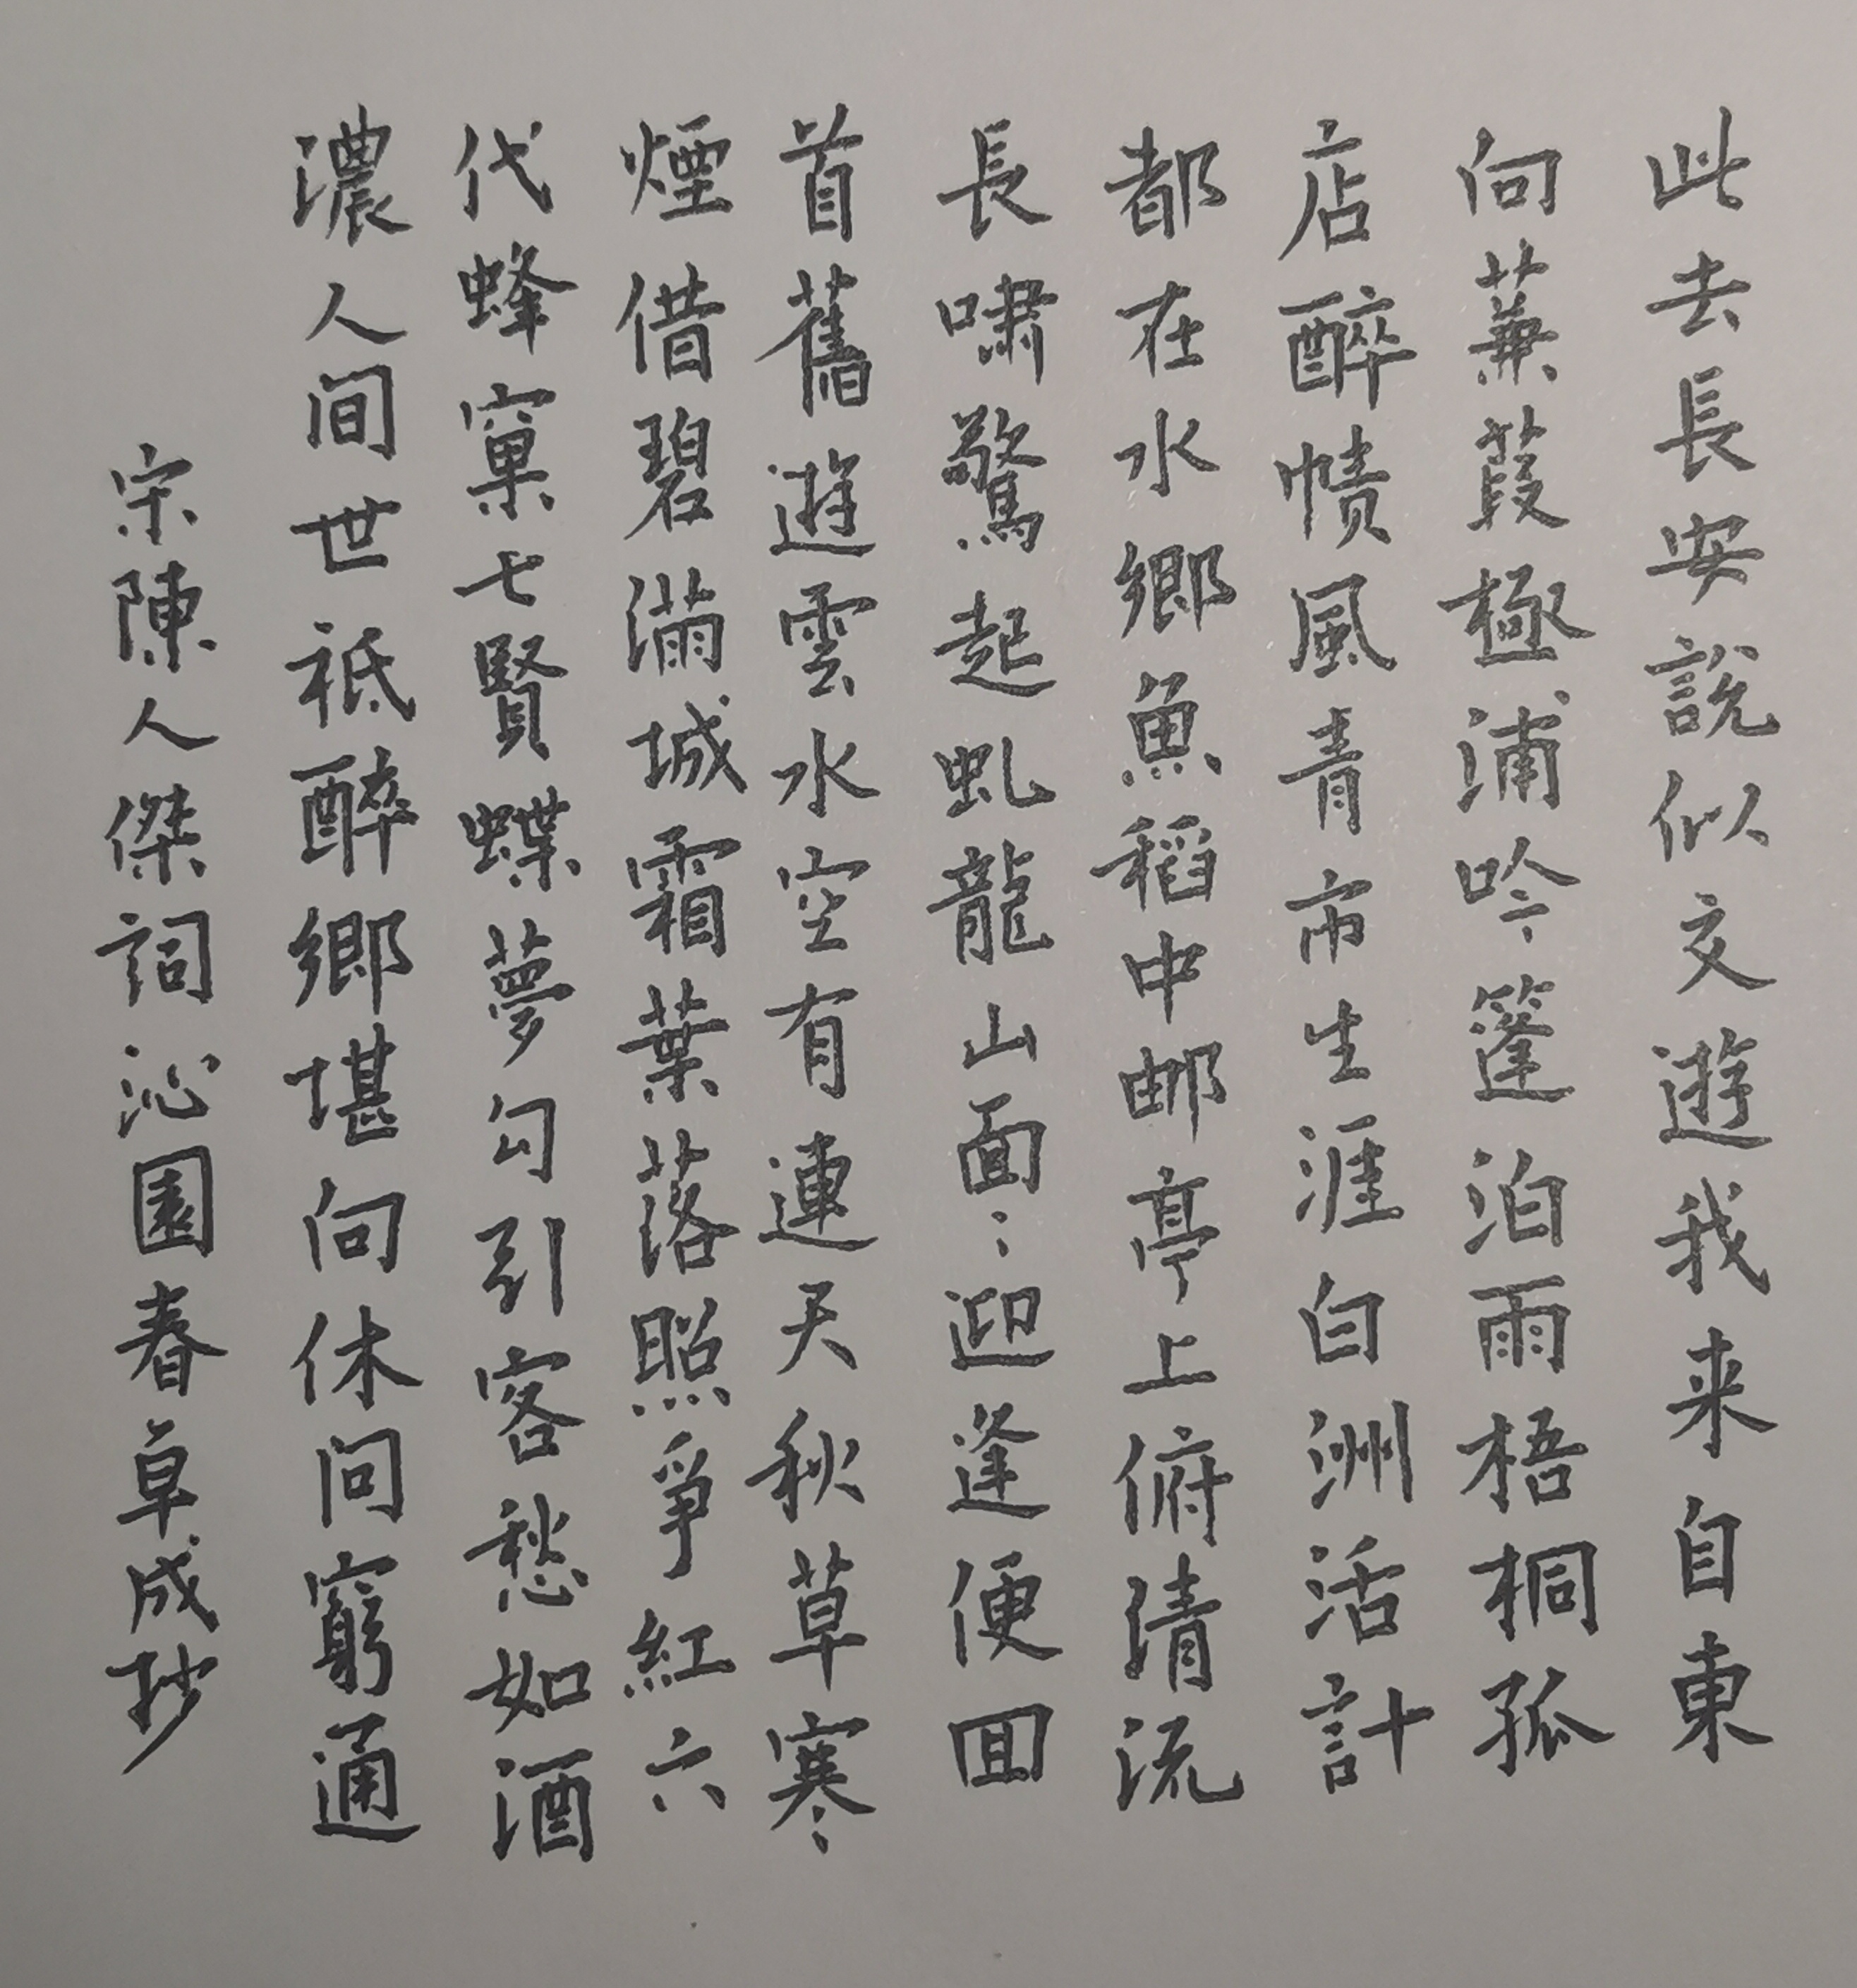 此去長安說似交遊我来自東
向蒹葭極浦吟篷泊雨梧桐孤
店醉幘風青市生涯白洲活計
都在水鄉魚稻中郵亭上俯清流
長啸驚起虬龍山面〻迎逢便囬
首舊遊雲水空有連天秋草寒
煙借碧滿城霜葉落照爭紅六
代蜂窠七賢蝶夢勾引客愁如酒
濃人间世祇醉鄉堪向休问窮通
宋陳人傑詞沁園春草成抄